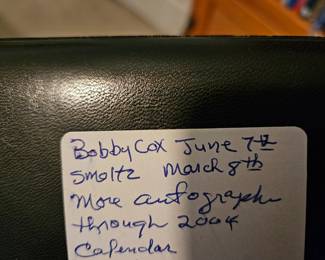 Bobby Cox June 7th
Smoltz March 8th
More autographs
through 2004
Calendar